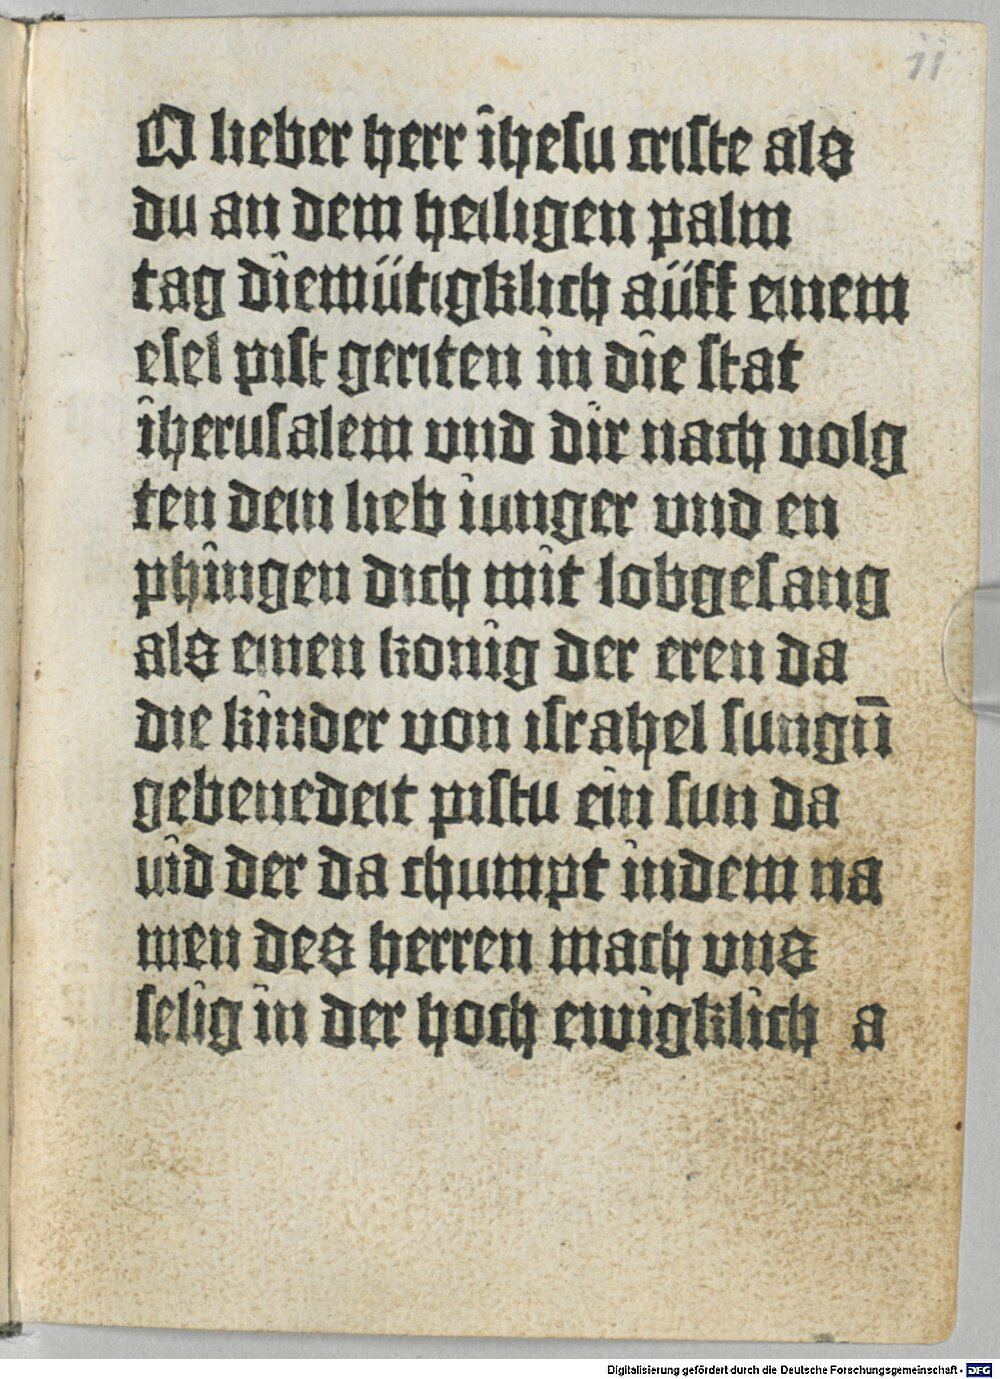 11
O lieber herr ihesu criste als
du an dem heiligen palm
tag diemütigklich aüff einem
esel pist geriten in die stat
iherusalem vnd dir nach volg
ten dein lieb iunger vnd en
phingen dich mit lobgesang
als einen konig der eren da
die kinder von israhel sungn̄
gebenedeit pistu ein sun da
uid der da chumpt indem na
men des herren mach vns
selig in der hoch ewigklich a
Digitalisierung gefördert durch die Deutsche Forschungsgemeinschaft - DFG